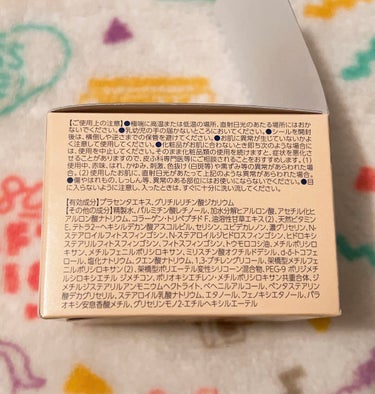 【ご使用上の注意】●極端に高温または低温の場所、直射日光のあたる場所にはおか
ないでください。●乳幼児の手の届かないところにおいてください。●シールを開封
後は、横倒しや逆さまでの保管を避けてください。●お肌に異常が生じていないかよ
く注意して使用してください。●化粧品がお肌に合わないとき即ち次のような場合に
は、使用を中止してください。そのまま化粧品類の使用を続けますと、症状を悪化さ
せることがありますので、皮ふ科専門医等にご相談されることをおすすめします。(1)
使用中、赤味、はれ、かゆみ、刺激、色抜け(白斑等)や黒ずみ等の異常があらわれた場
合。(2)使用したお肌に、直射日光があたって上記のような異常があらわれた場合。
●傷やはれもの、しっしん等、異常のある部位にはお使いにならないでください。●目
に入らないように注意し、入ったときは、すぐに十分に洗い流してください。
【有効成分】プラセンタエキス、グリチルリチン酸ジカリウム
【その他の成分】精製水、パルミチン酸レチノール、加水分解ヒアルロン酸、アセチル化ヒ
アルロン酸ナトリウム、コラーゲン・トリペプチド F、油溶性甘草エキス(2)、天然ビタミン
E、テトラ2-ヘキシルデカン酸アスコルビル、セリシン、ユビデカレノン、濃グリセリン、
N-ステアロイルフィトスフィンゴシン、N-ステアロイルジヒドロスフィンゴシン、ヒドロキシ
ステアリルフィトスフィンゴシン、フィトスフィンゴシン、トウモロコシ油、メチルポリシロ
キサン、メチルフェニルポリシロキサン、ミリスチン酸オクチルドデシル、d-δ-トコフ
ェロール、塩化ナトリウム、クエン酸ナトリウム、1,3-ブチレングリコール、架橋型メチルフ
ェニルポリシロキサン(2)、架橋型ポリエーテル変性シリコーン混合物、PEG-9 ポリジメチ
ルシロキシエチル ジメチコン、ポリオキシエチレン・メチルポリシロキサン共重合体、ジ
メチルジステアリルアンモニウムヘクトライト、ベヘニルアルコール、ペンタステアリン
酸デカグリセリル、ステアロイル乳酸ナトリウム、エタノール、フェノキシエタノール、パラ
オキシ安息香酸メチル、グリセリンモノ2-エチルヘキシルエーテル